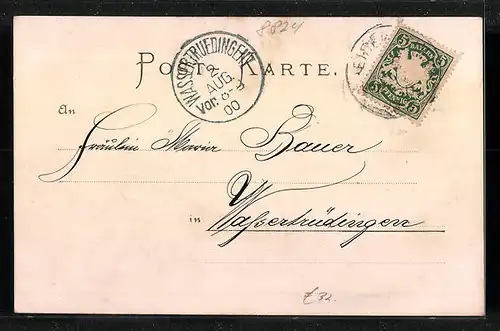 8824
POSTKARTE.
WASSERTRUEDINGEN
2
AUG.
Vor. 8-9
00
BAYERN
5 5
5 PFENNIG 5
An
Fräulein Maria Bauer
in Wassertrüdingen
£32.